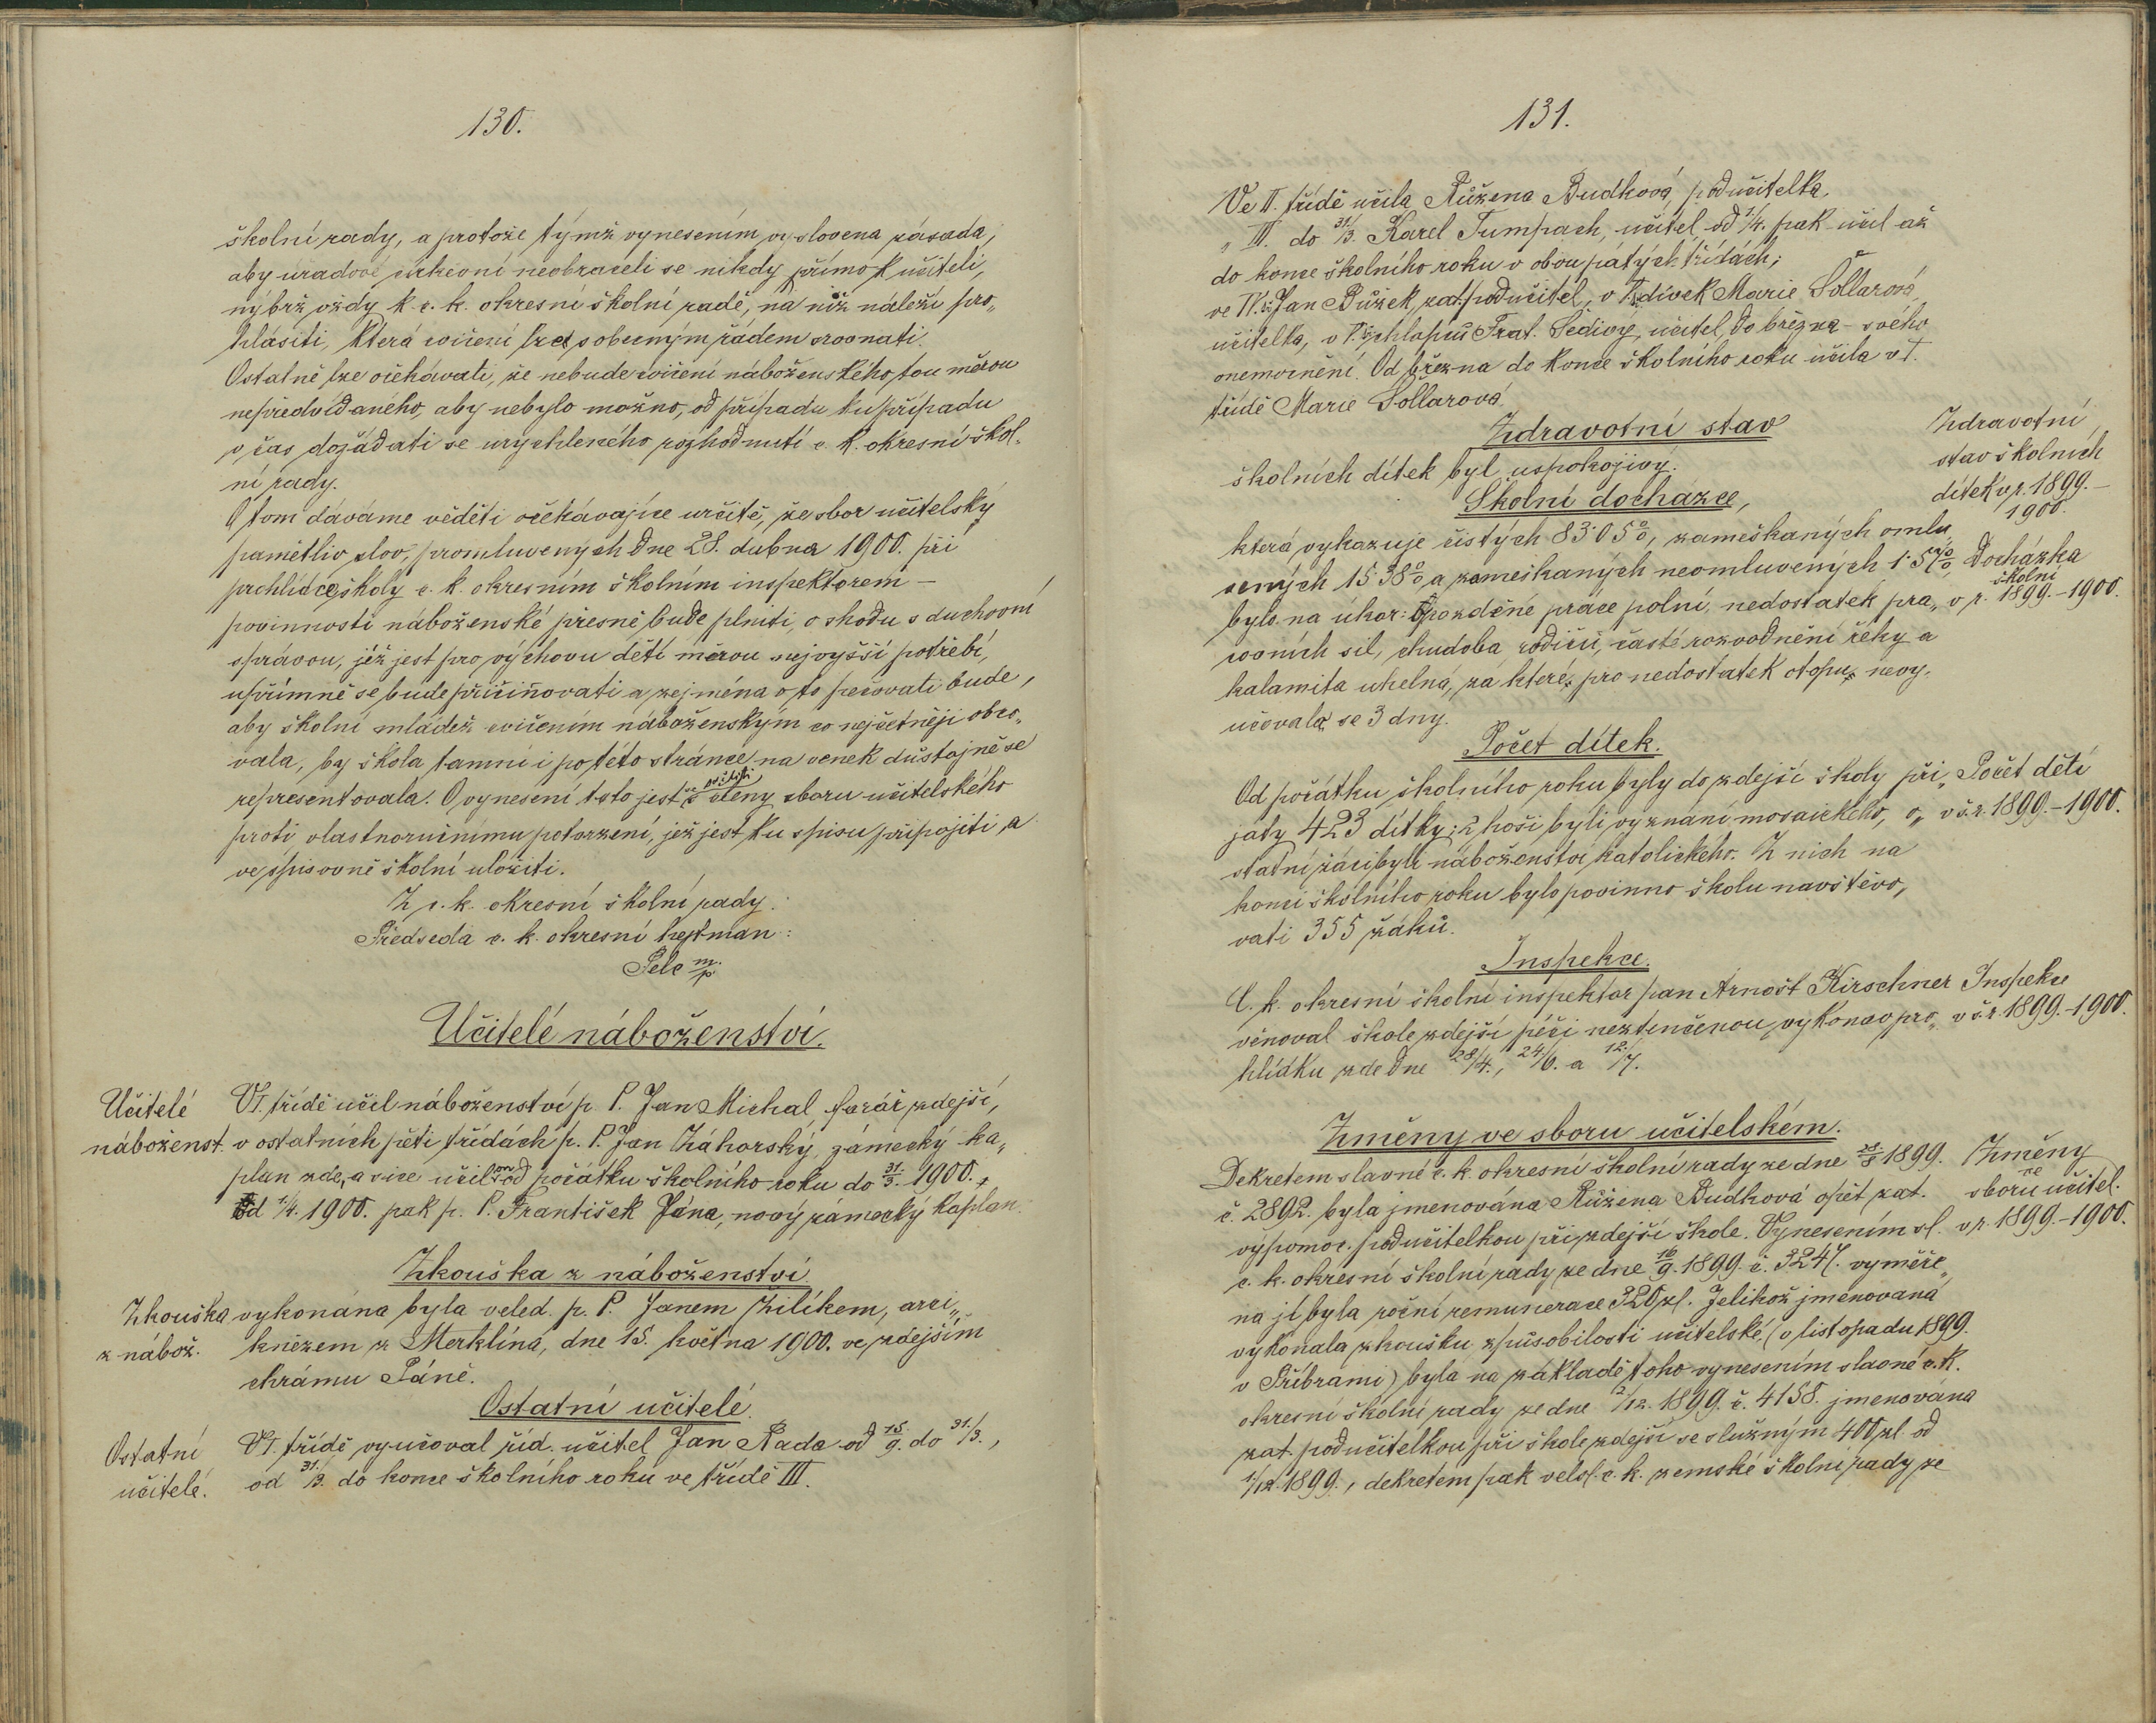 130.
školní rady, a protože týmž vynesením vyslovena zásada,
aby úřadové církevní neobraceli se nikdy přímo k učiteli,
nýbrž vždy k c. k. okresní školní radě, na níž náleží pro„
hlásiti, která cvičení lze s obecným řádem srovnati.
Ostatně lze očekávati, že nebude cvičení náboženského tou měrou
nepředvídaného, aby nebylo možno, od případu ku případu
v čas dožádati se urychleného rozhodnutí c. k. okresní škol„
ní rady.
O tom dáváme věděti očekávajíce určitě, že sbor učitelský
pamětliv slov, promluvených dne 28. dubna 1900. při
prohlídce školy c. k. okresním školním inspektorem –
povinnosti náboženské přesně bude plniti, o shodu s duchovní
správou, jíž jest pro výchovu dětí měrou nejvyšší potřebí,
upřímně se bude přičiňovati a zejména o to pečovati bude,
aby školní mládež cvičením náboženským co nejčetněji obco„
vala, by škola tamní i po této stránce na venek důstojně se
representovala. O vynesení toto jest členy sboru učitelského
proti vlastnoručnímu potvrzení, jež jest ku spisu připojiti a
ve spisovně školní uložiti.
Z c. k. okresní školní rady.
Předseda c. k. okresní hejtman:
Pelc m/p.
Učitelé náboženství.
Učitelé
náboženst.
V I. třídě učil náboženství p. P. Jan Michal, farář zdejší,
v ostatních pěti třídách p. P. Jan Záhorský, zámecký ka„
plan zde, a sice učil on od počátku školního roku do 31./3. 1900.,
od 1/4. 1900. pak p. P. František Jána, nový zámecký kaplan.
Zkouška z náboženství
Zkouška
z nábož.
vykonána byla veled. p. P. Janem Zilíkem, arci„
knězem z Merklína, dne 15. května 1900. ve zdejším
chrámu Páně.
Ostatní učitelé.
Ostatní
učitelé.
V I. třídě vyučoval říd. učitel Jan Rada od 15./9. do 31./3.,
od 31./3. do konce školního roku ve třídě III.
131.
Ve II. třídě učila Růžena Budková, podučitelka,
„ III. do 31/3. Karel Tumpach, učitel od 1/4. pak učil až
do konce školního roku v obou pátých třídách;
ve IV. tř. Jan Bůžek, zat. podučitel, v V. tř. dívek Marie Šollarová,
učitelka, v V. tř. chlapců Frat. Šedivý, učitel, do března – svého
onemocnění. Od března do konce školního roku učila v I.
třídě Marie Šollarová.
Zdravotní stav
školních dítek byl uspokojivý.
Zdravotní
stav školních
dítek v r. 1899.–
1900.
Školní docházce,
která vykazuje čistých 83·05%, zameškaných omlu„
vených 15·38% a zameškaných neomluvených 1·57%,
bylo na úkor: opozděné práce polní, nedostatek pra„
covních sil, chudoba rodičů, časté rozvodnění řeky a
kalamita uhelná, za které, pro nedostatek otopu, nevy„
učovalo se 3 dny.
Docházka
školní
v r. 1899.–1900.
Počet dítek.
Od počátku školního roku byly do zdejší školy při„
jaty 423 dítky; 2 hoši byli vyznání mosaického, o„
statní žáci byli náboženství katolického. Z nich na
konci školního roku bylo povinno školu navštěvo„
vati 355 žáků.
Počet dětí
v š. r. 1899.–1900.
Inspekce.
C. k. okresní školní inspektor pan Arnošt Kirschner
věnoval škole zdejší péči neztenčenou, vykonav pro„
hlídku zde dne 28/4., 24/6. a 12./7.
Inspekce
v š. r. 1899.–1900.
Změny ve sboru učitelském.
Dekretem slavné c. k. okresní školní rady ze dne 28./8 1899.
č. 2892. byla jmenována Růžena Budková opět zat.
výpomoc. podučitelkou při zdejší škole. Vynesením sl.
c. k. okresní školní rady ze dne 16/9. 1899. č. 3247. vyměře„
na jí byla roční remunerace 320 zl. Jelikož jmenovaná
vykonala zkoušku způsobilosti učitelské (v listopadu 1899.
v Příbrami) byla na základě toho vynesením slavné c. k.
okresní školní rady ze dne 2/12. 1899. č. 4158. jmenována
zat. podučitelkou při škole zdejší se služným 400 zl. od
1/12. 1899., dekretem pak velesl. c. k. zemské školní rady ze
Změny
ve
sboru učitel.
v r. 1899.–1900.